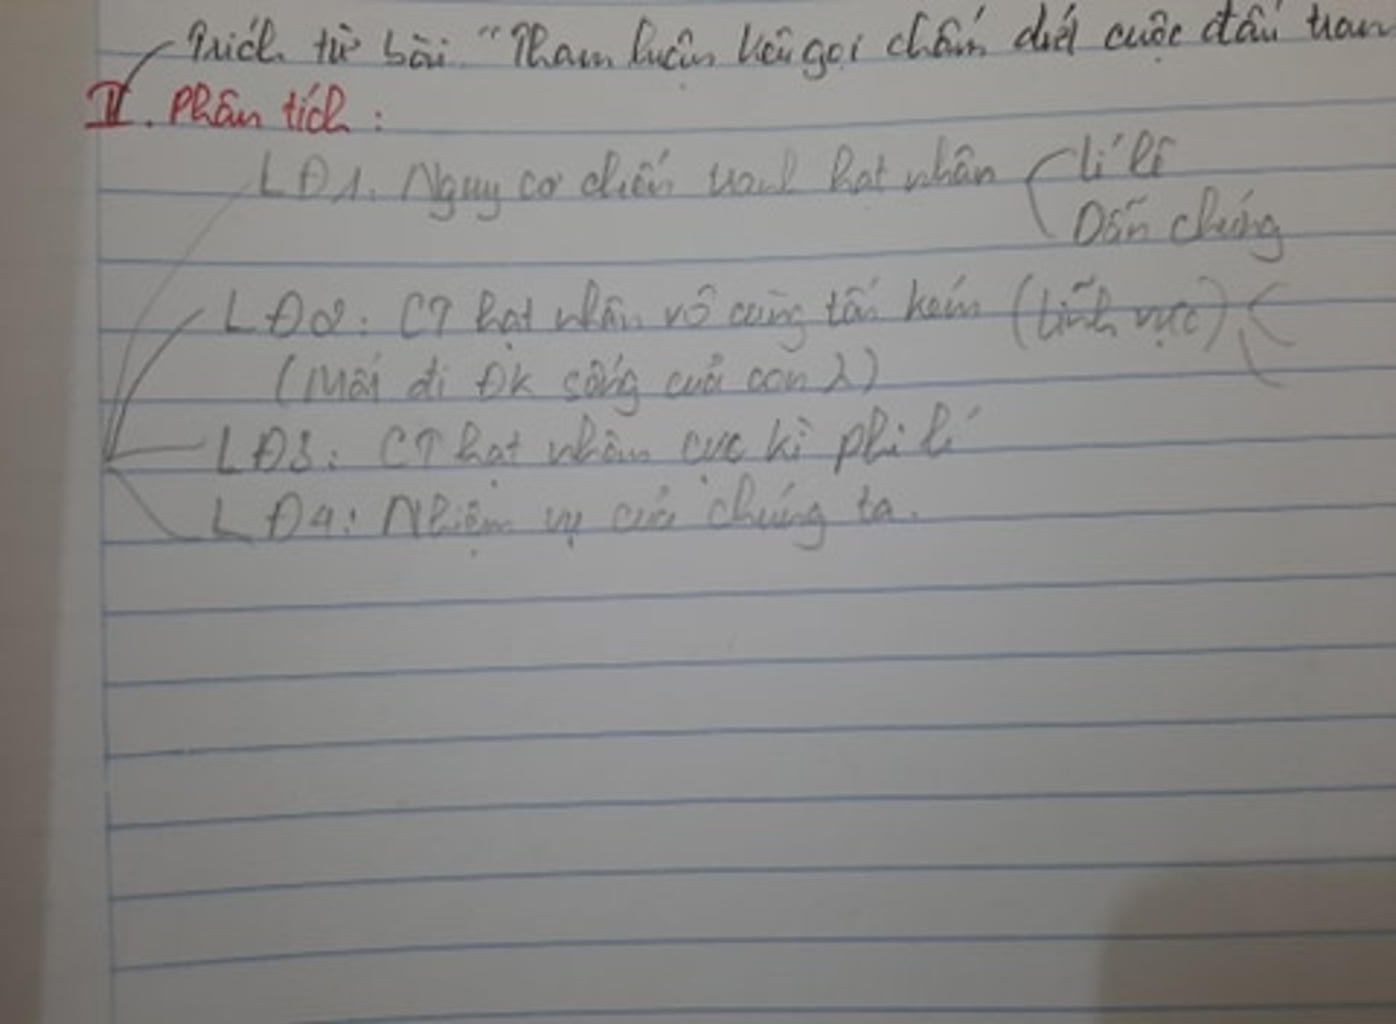 Trích từ bài "Tham luận kêu gọi chấm dứt cuộc đấu tran
II. Phân tích:
LĐ1. Nguy cơ chiến tranh hạt nhân lí lẽ
Dẫn chứng
LĐ2: CT hạt nhân vô cùng tốn kém (lĩnh vực)
(Mất đi ĐK sống của con λ)
LĐ3: CT hạt nhân cực kì phi lí
LĐ4: Nhiệm vụ của chúng ta.